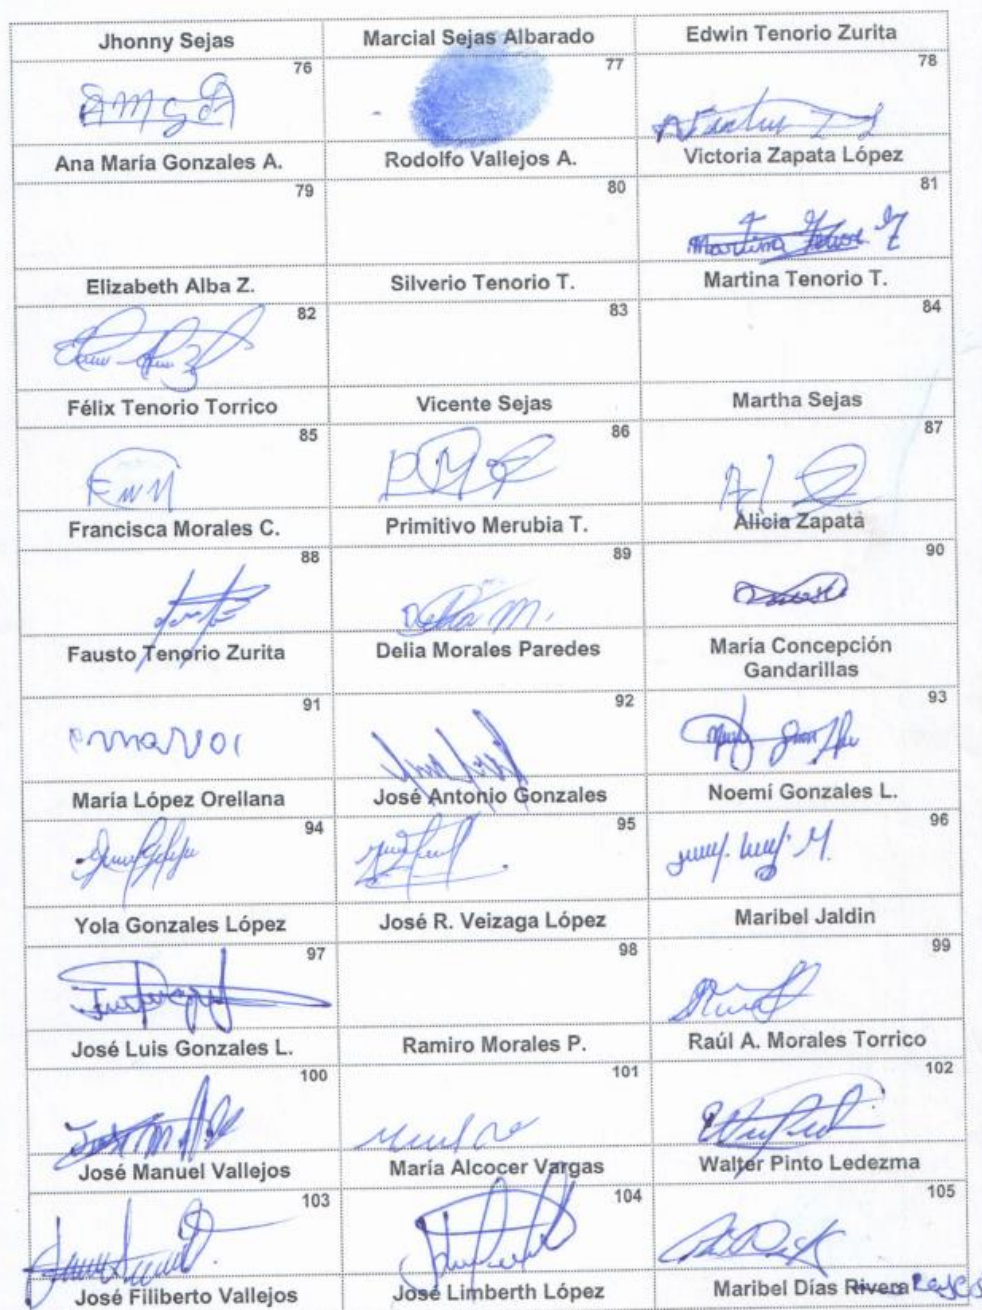 Jhonny Sejas Marcial Sejas Albarado Edwin Tenorio Zurita
76 77 78
Ana María Gonzales A. Rodolfo Vallejos A. Victoria Zapata López
79 80 81
Martina
Elizabeth Alba Z. Silverio Tenorio T. Martina Tenorio T.
82 83 84
Félix Tenorio Torrico Vicente Sejas Martha Sejas
85 86 87
Francisca Morales C. Primitivo Merubia T. Alicia Zapata
88 89 90
Delia M.
Fausto Tenorio Zurita Delia Morales Paredes María Concepción
Gandarillas
91 92 93
María López Orellana José Antonio Gonzales Noemí Gonzales L.
94 95 96
Yola Gonzales López José R. Veizaga López Maribel Jaldin
97 98 99
José Luis Gonzales L. Ramiro Morales P. Raúl A. Morales Torrico
100 101 102
José Manuel Vallejos María Alcocer Vargas Walter Pinto Ledezma
103 104 105
José Filiberto Vallejos José Limberth López Maribel Días Rivera